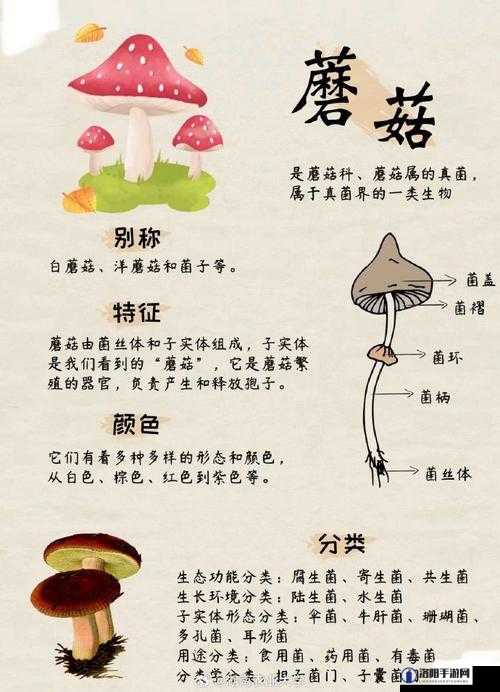 蘑菇
是蘑菇科、蘑菇属的真菌,
属于真菌界的一类生物
别称
白蘑菇、洋蘑菇和菌子等。
特征
蘑菇由菌丝体和子实体组成，子实体
是我们看到的“蘑菇”，它是蘑菇繁
殖的器官，负责产生和释放孢子。
颜色
它们有着多种多样的形态和颜色，
从白色、棕色、红色到紫色等。
菌盖
菌褶
菌环
菌柄
菌丝体
分类
生态功能分类：腐生菌、寄生菌、共生菌
生长环境分类：陆生菌、水生菌
子实体形态分类：伞菌、牛肝菌、珊瑚菌、
多孔菌、耳形菌
用途分类：食用菌、药用菌、有毒菌
分类学分类：担子菌门、子囊菌
洛阳手游网